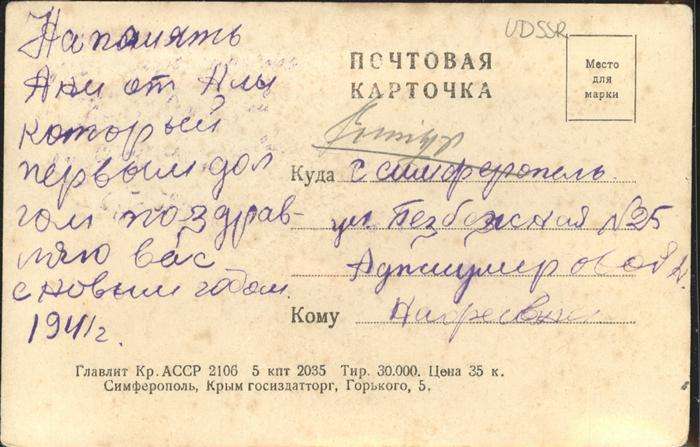 На память
Ани от Али
который
первым дол
гом поздрав-
ляю вас
с новым годом
1941 г.
UDSSR
ПОЧТОВАЯ
КАРТОЧКА
Место
для
марки
Куда г Симферополь
ул Безбожная №25
Кому
Главлит Кр. АССР 2106 5 кпт 2035 Тир. 30.000. Цена 35 к.
Симферополь, Крым госиздатторг, Горького, 5.